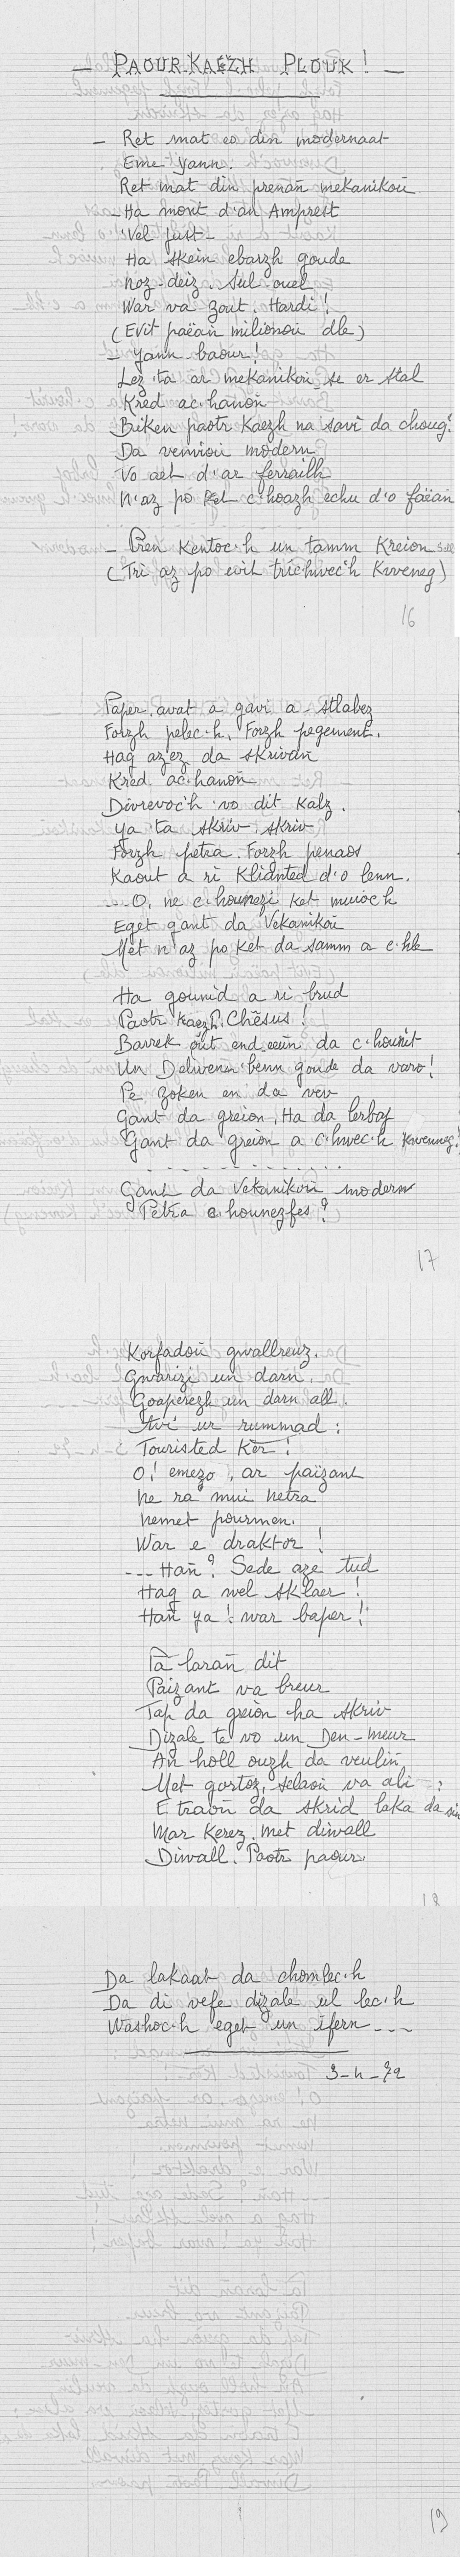 — PAOUR KAEZH PLOUK ! —
— Ret mat eo din modernaat
Eme Yann.
Ret mat din prenañ mekanikoù
— Ha mont d'an Amprest
'Vel just —
Ha skein ebarzh goude
Noz-deiz. Sul-ouel
War va zout. Hardi !
(Evit paeañ milionoù dle)
— Yann baour !
Lez 'ta ar mekanikoù-se er stal
Kred ac'hanon
Biken paotr kaezh na savi da choug
Da vernioù modern
Vo aet d'ar ferrailh
N'az po ket c'hoazh echu d'o faeañ
— Pren kentoc'h un tamm kreion
(Tri az po evit tric'hwec'h kwenneg)
16
Paper, avat a gavi a-stlabez
Forzh pelec'h, Forzh pegement.
Hag azez da skrivañ
Kred ac'hanon
Divrevoc'h vo dit kalz.
Ya 'ta skriv skriv
Forzh petra. Forzh penaos
Kaout a ri klianted d'o lenn.
O, ne c'hounezi ket muioc'h
Eget gant da Vekanikoù
Met n'az po ket da samm a c'hle
Ha gounid a ri brud
Paotr kaezh. Chesus !
Barrek out end-eeun da c'hounit
Un Deliverenn benn goude da varo !
Pe zoken en da vev
Gant da greion, Ha da
Gant da greion a c'hwec'h kwenneg !
. . . . . . . . . . . .
Gant da Vekanikoù modern
Petra c'hounezfes ?
17
Korfadoù gwallreuz.
Gwarizi un darn.
Goaperezh un darn all.
Avi ur rummad :
Touristed Kêr !
O ! emezo, ar paizant
Ne ra mui netra
Nemet pourmen.
War e draktor !
--- Hañ ? Sede aze tud
Hag a wel sklaer !
Hañ ya ! war baper !
Ta larañ dit
Paizant va breur
Tap da greion ha skriv
Dizale te vo un Den-meur
An holl ougn da veuliñ
Met gortoz, selaou va ali :
E traoñ da skrid laka da sin
Mar kerez. Met diwall
Diwall. Paotr paour.
18
Da lakaat da chomlec'h
Da di vefe dizale ul lec'h
Washoc'h eget un ifern ---
3-4-72
19